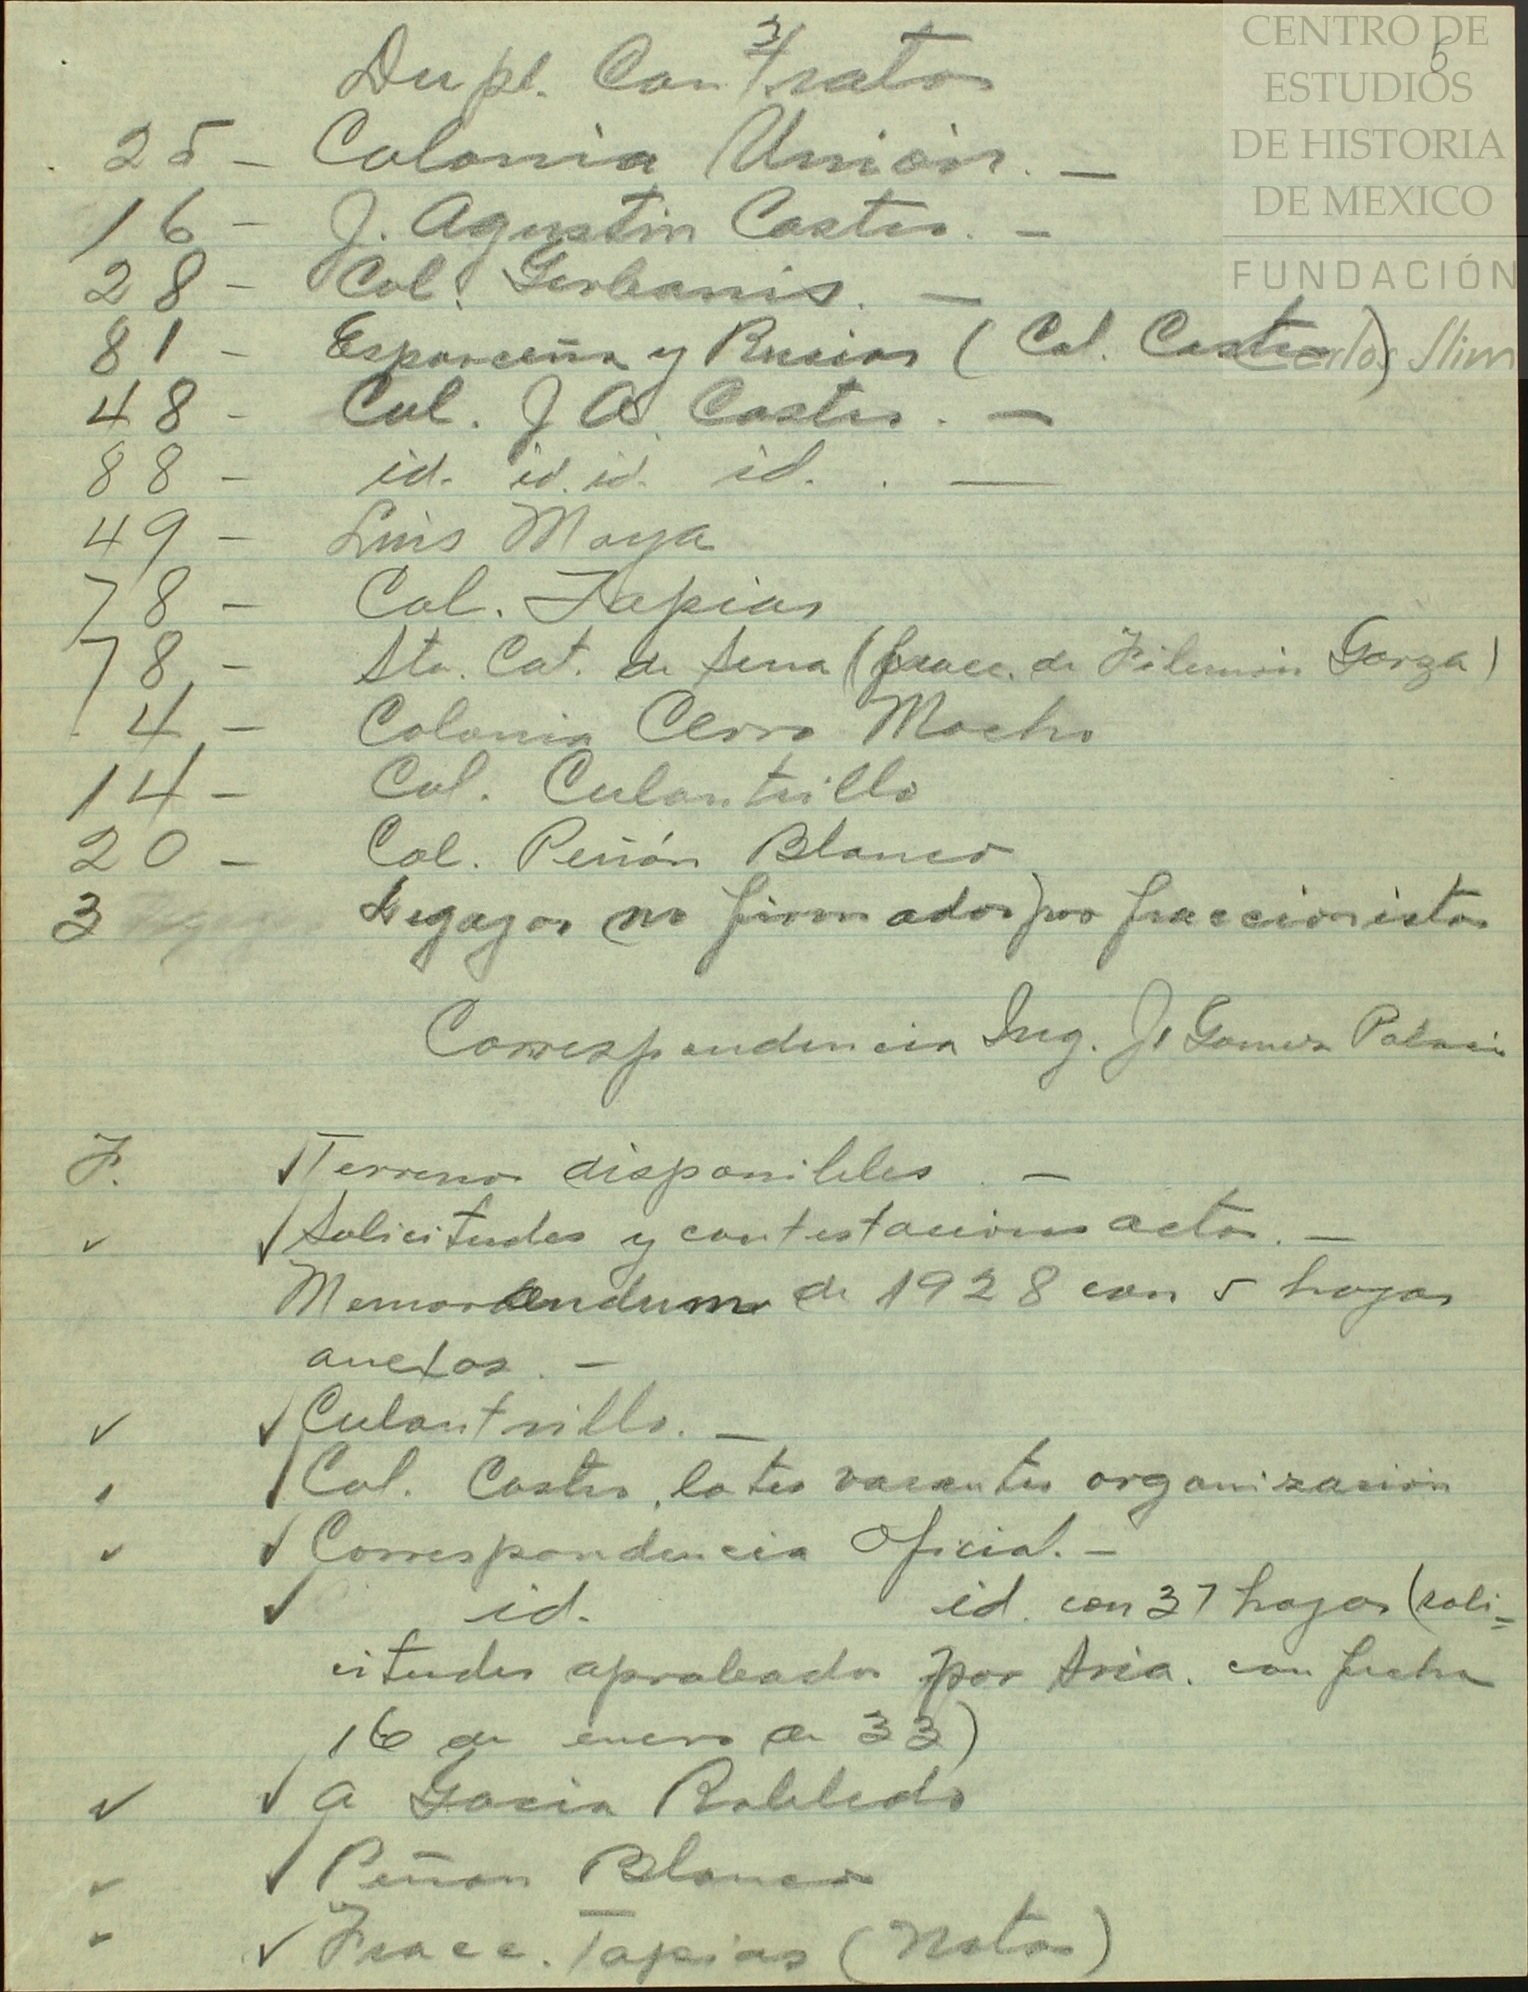 3
6
Dupl. Contratos
25 - Colonia Unión. -
16 - J. Agustin Castro. -
28 - Col. Gerbanis. -
81 - Esparceña y Rusias (Col. Castro)
48 - Col. J A. Castro. -
88 - id. id. id. id. . -
49 - Luis Moya
78 - Col. Tapias
78 - Sta. Cat. de Sena (fracc. de Filemón Garza)
4 - Colonia Cerro Mocho
14 - Col. Culantrillo
20 - Col. Peñón Blanco
3 Legajos no firmados por fraccionistas
Correspondencia Ing. J. Gomez Palacio
F. ✓ Terrenos disponibles. -
✓ ✓ Solicitudes y contestaciones actos. -
Memorandum de 1928 con 5 hojas
anexas. -
✓ ✓ Culantrillo. -
✓ ✓ Col. Castro, lotes vacantes organización
✓ ✓ Correspondencia Oficial. -
✓ id. id. con 37 hojas (soli=
citudes aprobadas por Sria. con fecha
16 de enero de 33)
✓ ✓ A Garcia Robledo
✓ ✓ Peñon Blanco
✓ ✓ Fracc. Tapias (Notas)
CENTRO DE
ESTUDIOS
DE HISTORIA
DE MEXICO
FUNDACIÓN
Carlos Slim